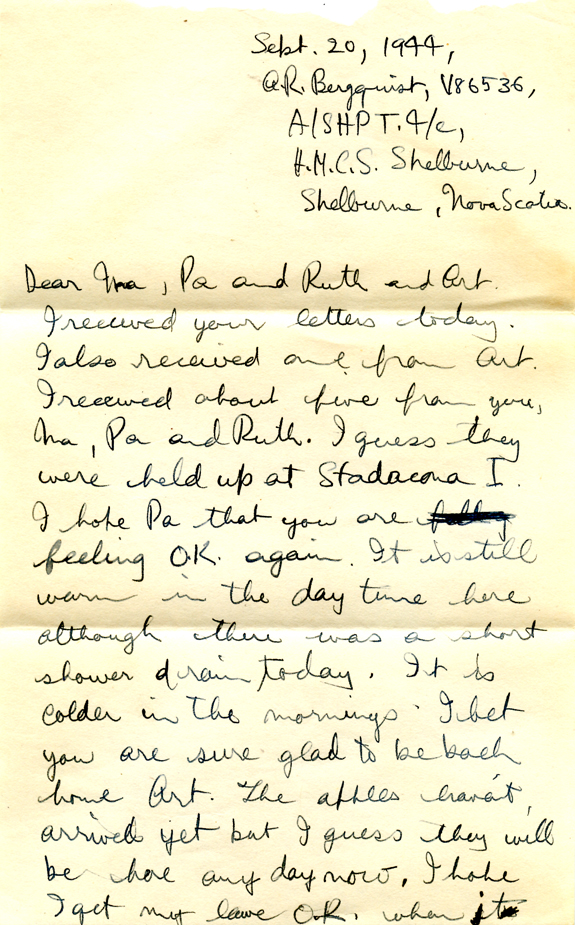 Sept. 20, 1944,
A.R. Bergquist, V86536,
A/SHPT. 4/c,
H.M.C.S. Shelburne,
Shelburne, Nova Scotia.
Dear Ma, Pa and Ruth and Art.
I received your letters today.
I also received one from Art.
I received about five from you,
Ma, Pa and Ruth. I guess they
were held up at Stadacona I.
I hope Pa that you are
feeling O.K. again. It is still
warm in the day time here
although there was a short
shower of rain today. It is
colder in the mornings. I bet
you are sure glad to be back
home Art. The apples havn't,
arrived yet but I guess they will
be here any day now. I hope
I get my leave O.K. when it